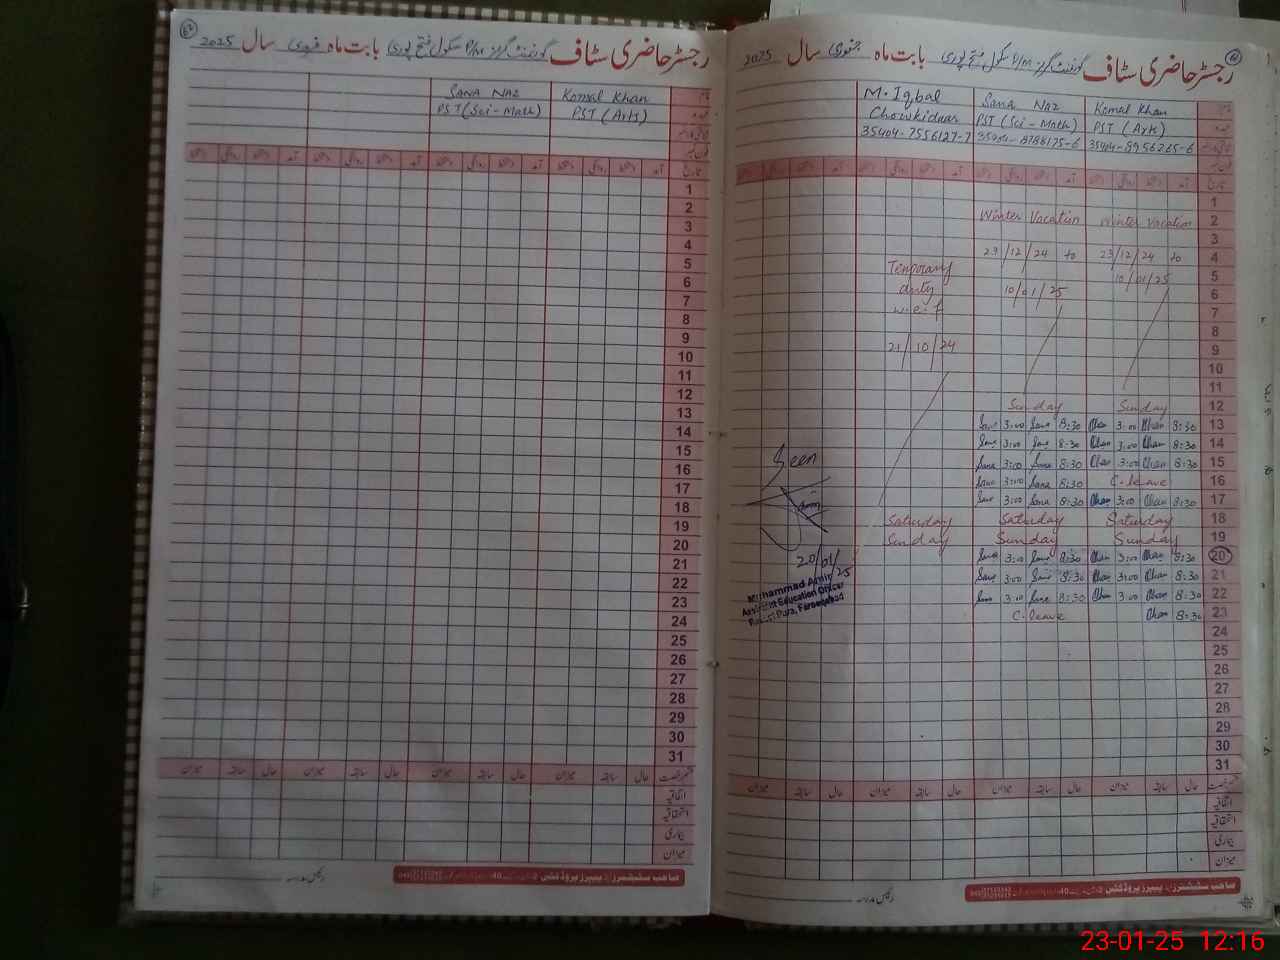 رجسٹر حاضری سٹاف گورنمنٹ گرلز P/M سکول فتح پوری بابت ماہ جنوری سال 2025
M. Iqbal Sana Naz Komal Khan
Chowkidaar PST (Sci - Math) PST (Art)
35404-7556127-7 35404-8788175-6 35404-8956265-6
1
Winter Vacation Winter Vacation 2
3
23/12/24 to 23/12/24 to 4
Temporary 10/01/25 5
duty 10/01/25 6
w.e.f 7
8
21/10/24 9
10
11
Sunday Sunday 12
Sana 3:00 Sana 8:30 Khan 3:00 Khan 8:30 13
Sana 3:00 Sana 8:30 Khan 3:00 Khan 8:30 14
Sana 3:00 Sana 8:30 Khan 3:00 Khan 8:30 15
Seen Sana 3:00 Sana 8:30 C. leave 16
Sana 3:00 Sana 8:30 Khan 3:00 Khan 8:30 17
Saturday Saturday Saturday 18
Sunday Sunday Sunday 19
20/01/25 Sana 3:00 Sana 8:30 Khan 3:00 Khan 8:30 20
Sana 3:00 Sana 8:30 Khan 3:00 Khan 8:30 21
Sana 3:00 Sana 8:30 Khan 3:00 Khan 8:30 22
C. leave Khan 8:30 23
Muhammad Amin
Assistant Education Officer
24
25
26
27
28
29
30
31
میزان سابقہ حال میزان سابقہ حال میزان سابقہ حال میزان سابقہ حال
اتفاقیہ
استحقاقیہ
بیماری
میزان
صاحب سٹیشنرز اینڈ پیپرز پروڈکٹس
رئیس مدرسہ
رجسٹر حاضری سٹاف گورنمنٹ گرلز P/M سکول فتح پوری بابت ماہ فروری سال 2025
Sana Naz Komal Khan
PST (Sci - Math) PST (Art)
1
2
3
4
5
6
7
8
9
10
11
12
13
14
15
16
17
18
19
20
21
22
23
24
25
26
27
28
29
30
31
میزان سابقہ حال میزان سابقہ حال میزان سابقہ حال میزان سابقہ حال
اتفاقیہ
استحقاقیہ
بیماری
میزان
صاحب سٹیشنرز اینڈ پیپرز پروڈکٹس
رئیس مدرسہ
23-01-25 12:16